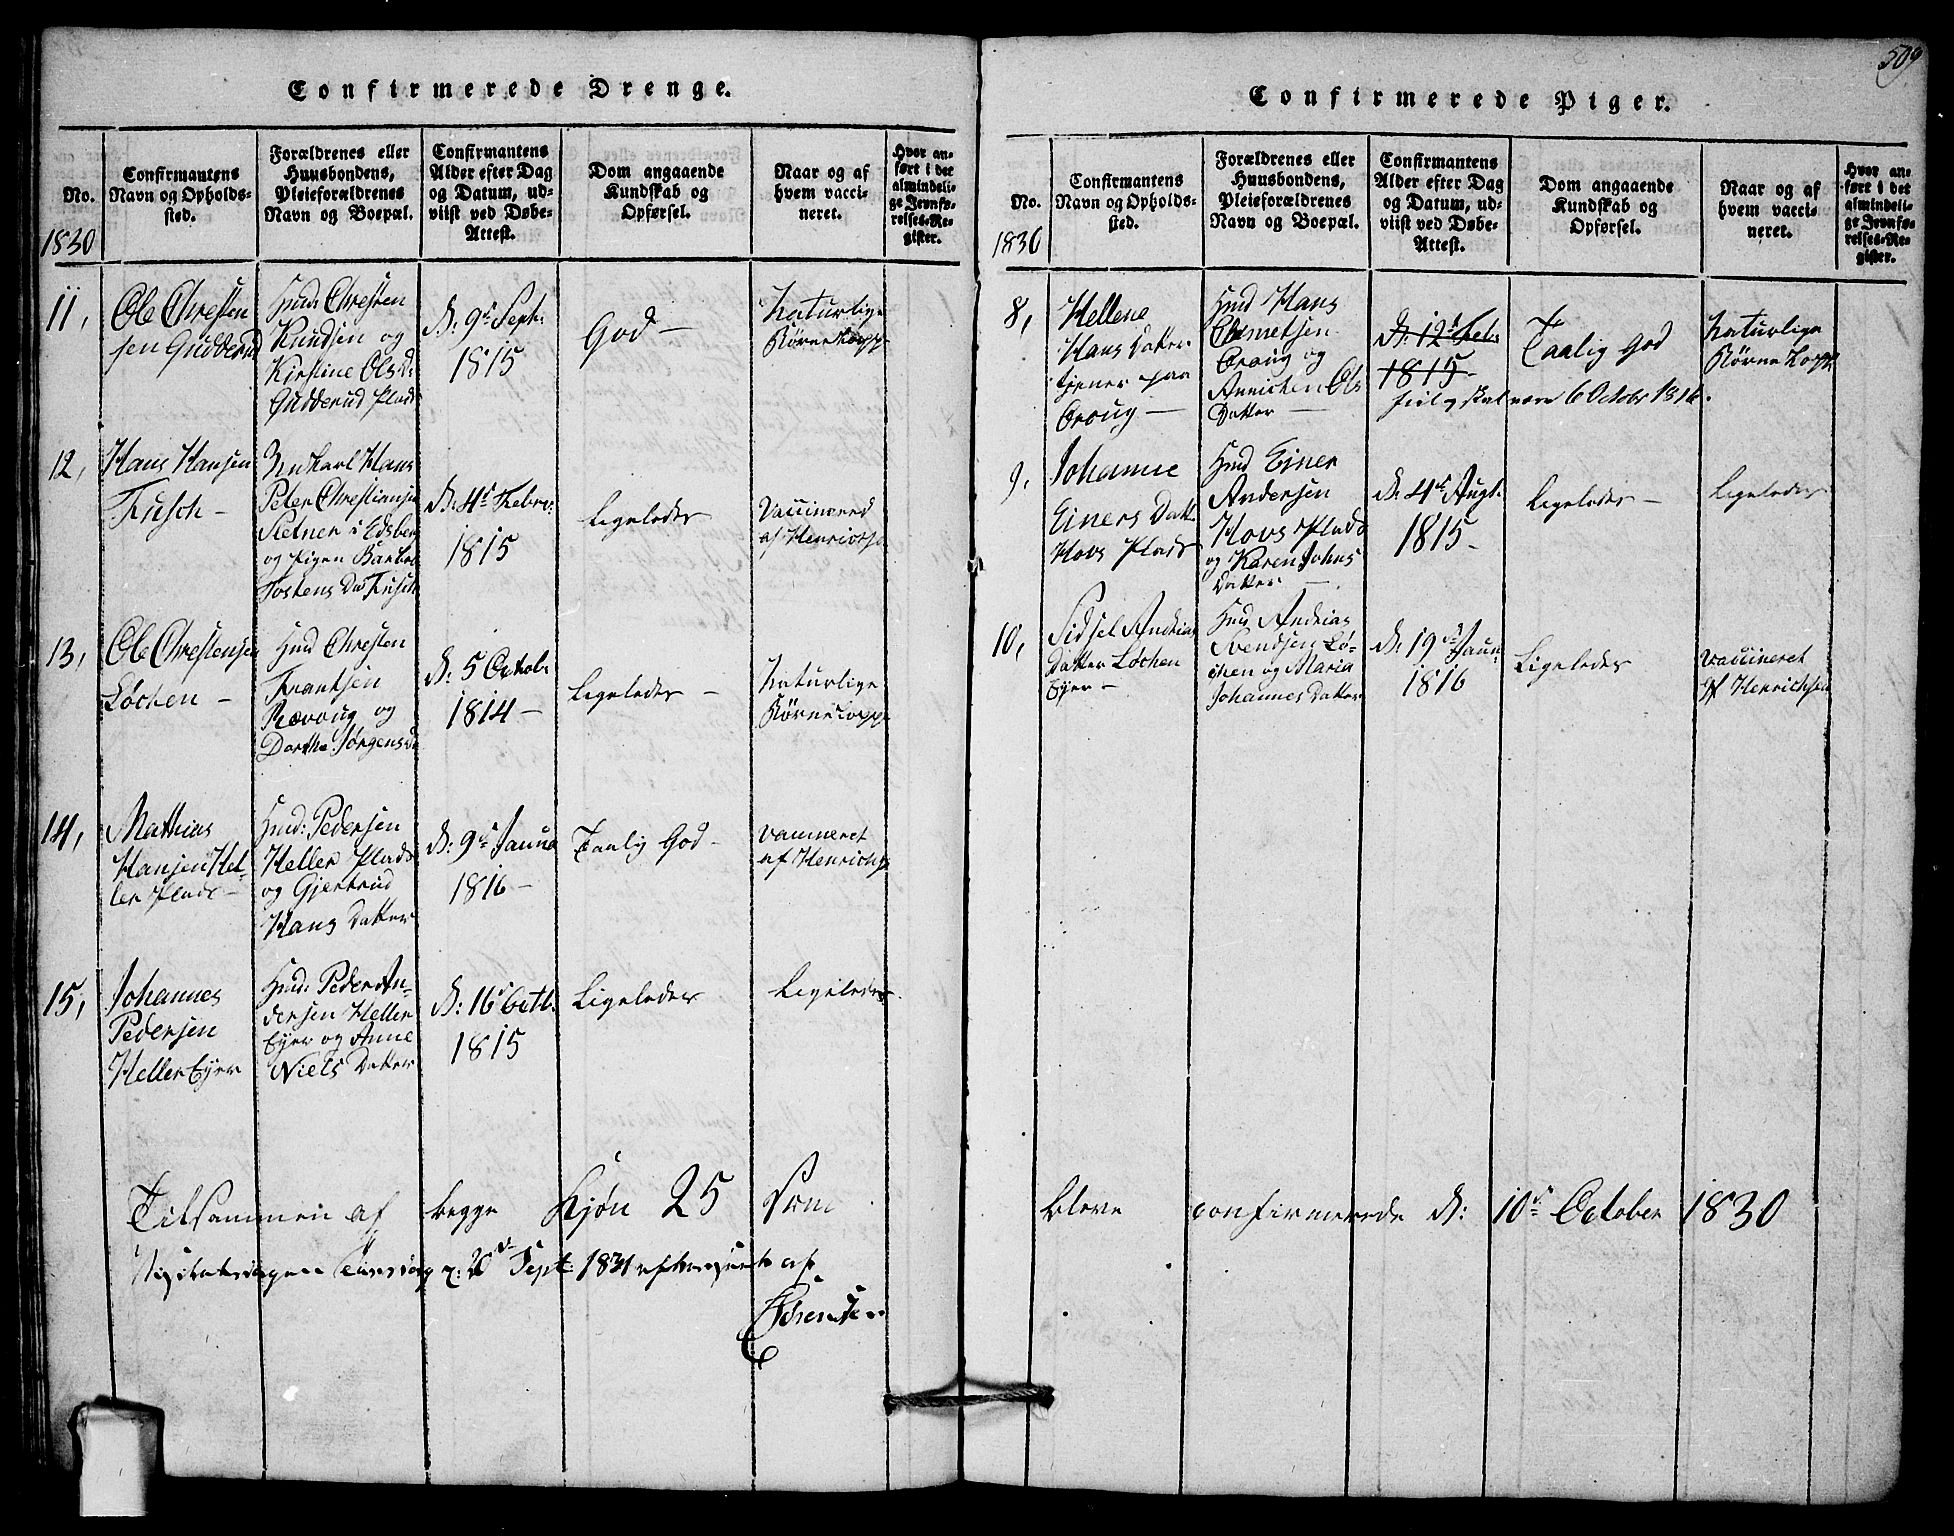 509
Confirmerede Drenge.
No.
Confirmantens
Navn og Opholds-
sted.
Forældrenes eller
Huusbondens,
Pleieforældrenes
Navn og Boepæl.
Confirmantens
Alder efter Dag
og Datum, ud-
viist ved Døbe-
Attest.
Dom angaaende
Kundskab og
Opførsel.
Naar og af
hvem vacci-
neret.
Hvor an-
ført i det
almindeli-
ge Jevnfø-
relses-Re-
gister.
1830
11,
Ole Christen
sen Gudderud
Hmd: Christen
Knudsen og
Kirstine Ols D:
Gudderud Plads
D: 9d Sept:
1815
God —
Naturlige
Børnekopp
12,
Hans Hansen
Fusch —
Unkarl Hans
Peter Christiansen
Sletner i Edsberg
og Pigen Barbro
Tostens Dat Fusch
D: 4d Febr:
1815
Ligeledes
Vaccineret
af Henrichs
13,
Ole Christensen
Løchen —
Hmd Christen
Frantsen
Rævoug og
Dorthe Jørgensd
D: 5 Octobr
1814 —
Ligeledes —
Naturlige
Børnekopp
14,
Mathias
Hansen Hel-
ler Plads —
Hmd: Pedersen
Heller Plads
og Gjertrud
Hans Datter
D: 9d Janua
1816 —
Taalig God —
Vaccineret
af Henrichs
15,
Johannes
Pedersen
Heller Eyer
Hmd: Peder An-
dersen Heller
Eyer og Anne
Niels Datter
D: 16d Octb.
1815
Ligeledes
Ligeledes
Tilsammen af begge Kjøn 25 Som
Sept: 1831 af
Sørensen
Confirmerede Piger.
No.
Confirmantens
Navn og Opholds-
sted.
Forældrenes eller
Huusbondens,
Pleieforældrenes
Navn og Boepæl.
Confirmantens
Alder efter Dag
og Datum, ud-
viist ved Døbe-
Attest.
Dom angaaende
Kundskab og
Opførsel.
Naar og af
hvem vacci-
neret.
Hvor an-
ført i det
almindeli-
ge Jevnfø-
relses-Re-
gister.
1830
8,
Hellene
Hans Datter
tjener paa
Oroug —
Hmd Hans
Oroug og
Annichen Ols
Datter —
D: 12d Febr:
1815 —
feil, skal være 6 Octobr 1816.
Taalig God
Naturlige
Børne Kopp
9,
Johanne
Einers Datt
Hovs Plads
Hmd Einer
Andersen
Hovs Plads
og Karen Johns
Datter —
D: 4d Augt.
1815 —
Ligeledes —
Ligeledes
10,
Sidsel Andreas
Datter Løchen
Eyer —
Hmd Andreas
Svendsen Lø-
chen og Maria
Johannes Datter
D: 19d Janu
1816
Ligeledes
Vaccineret
af Henrichsen
bleve confirmerede D: 10d October 1830